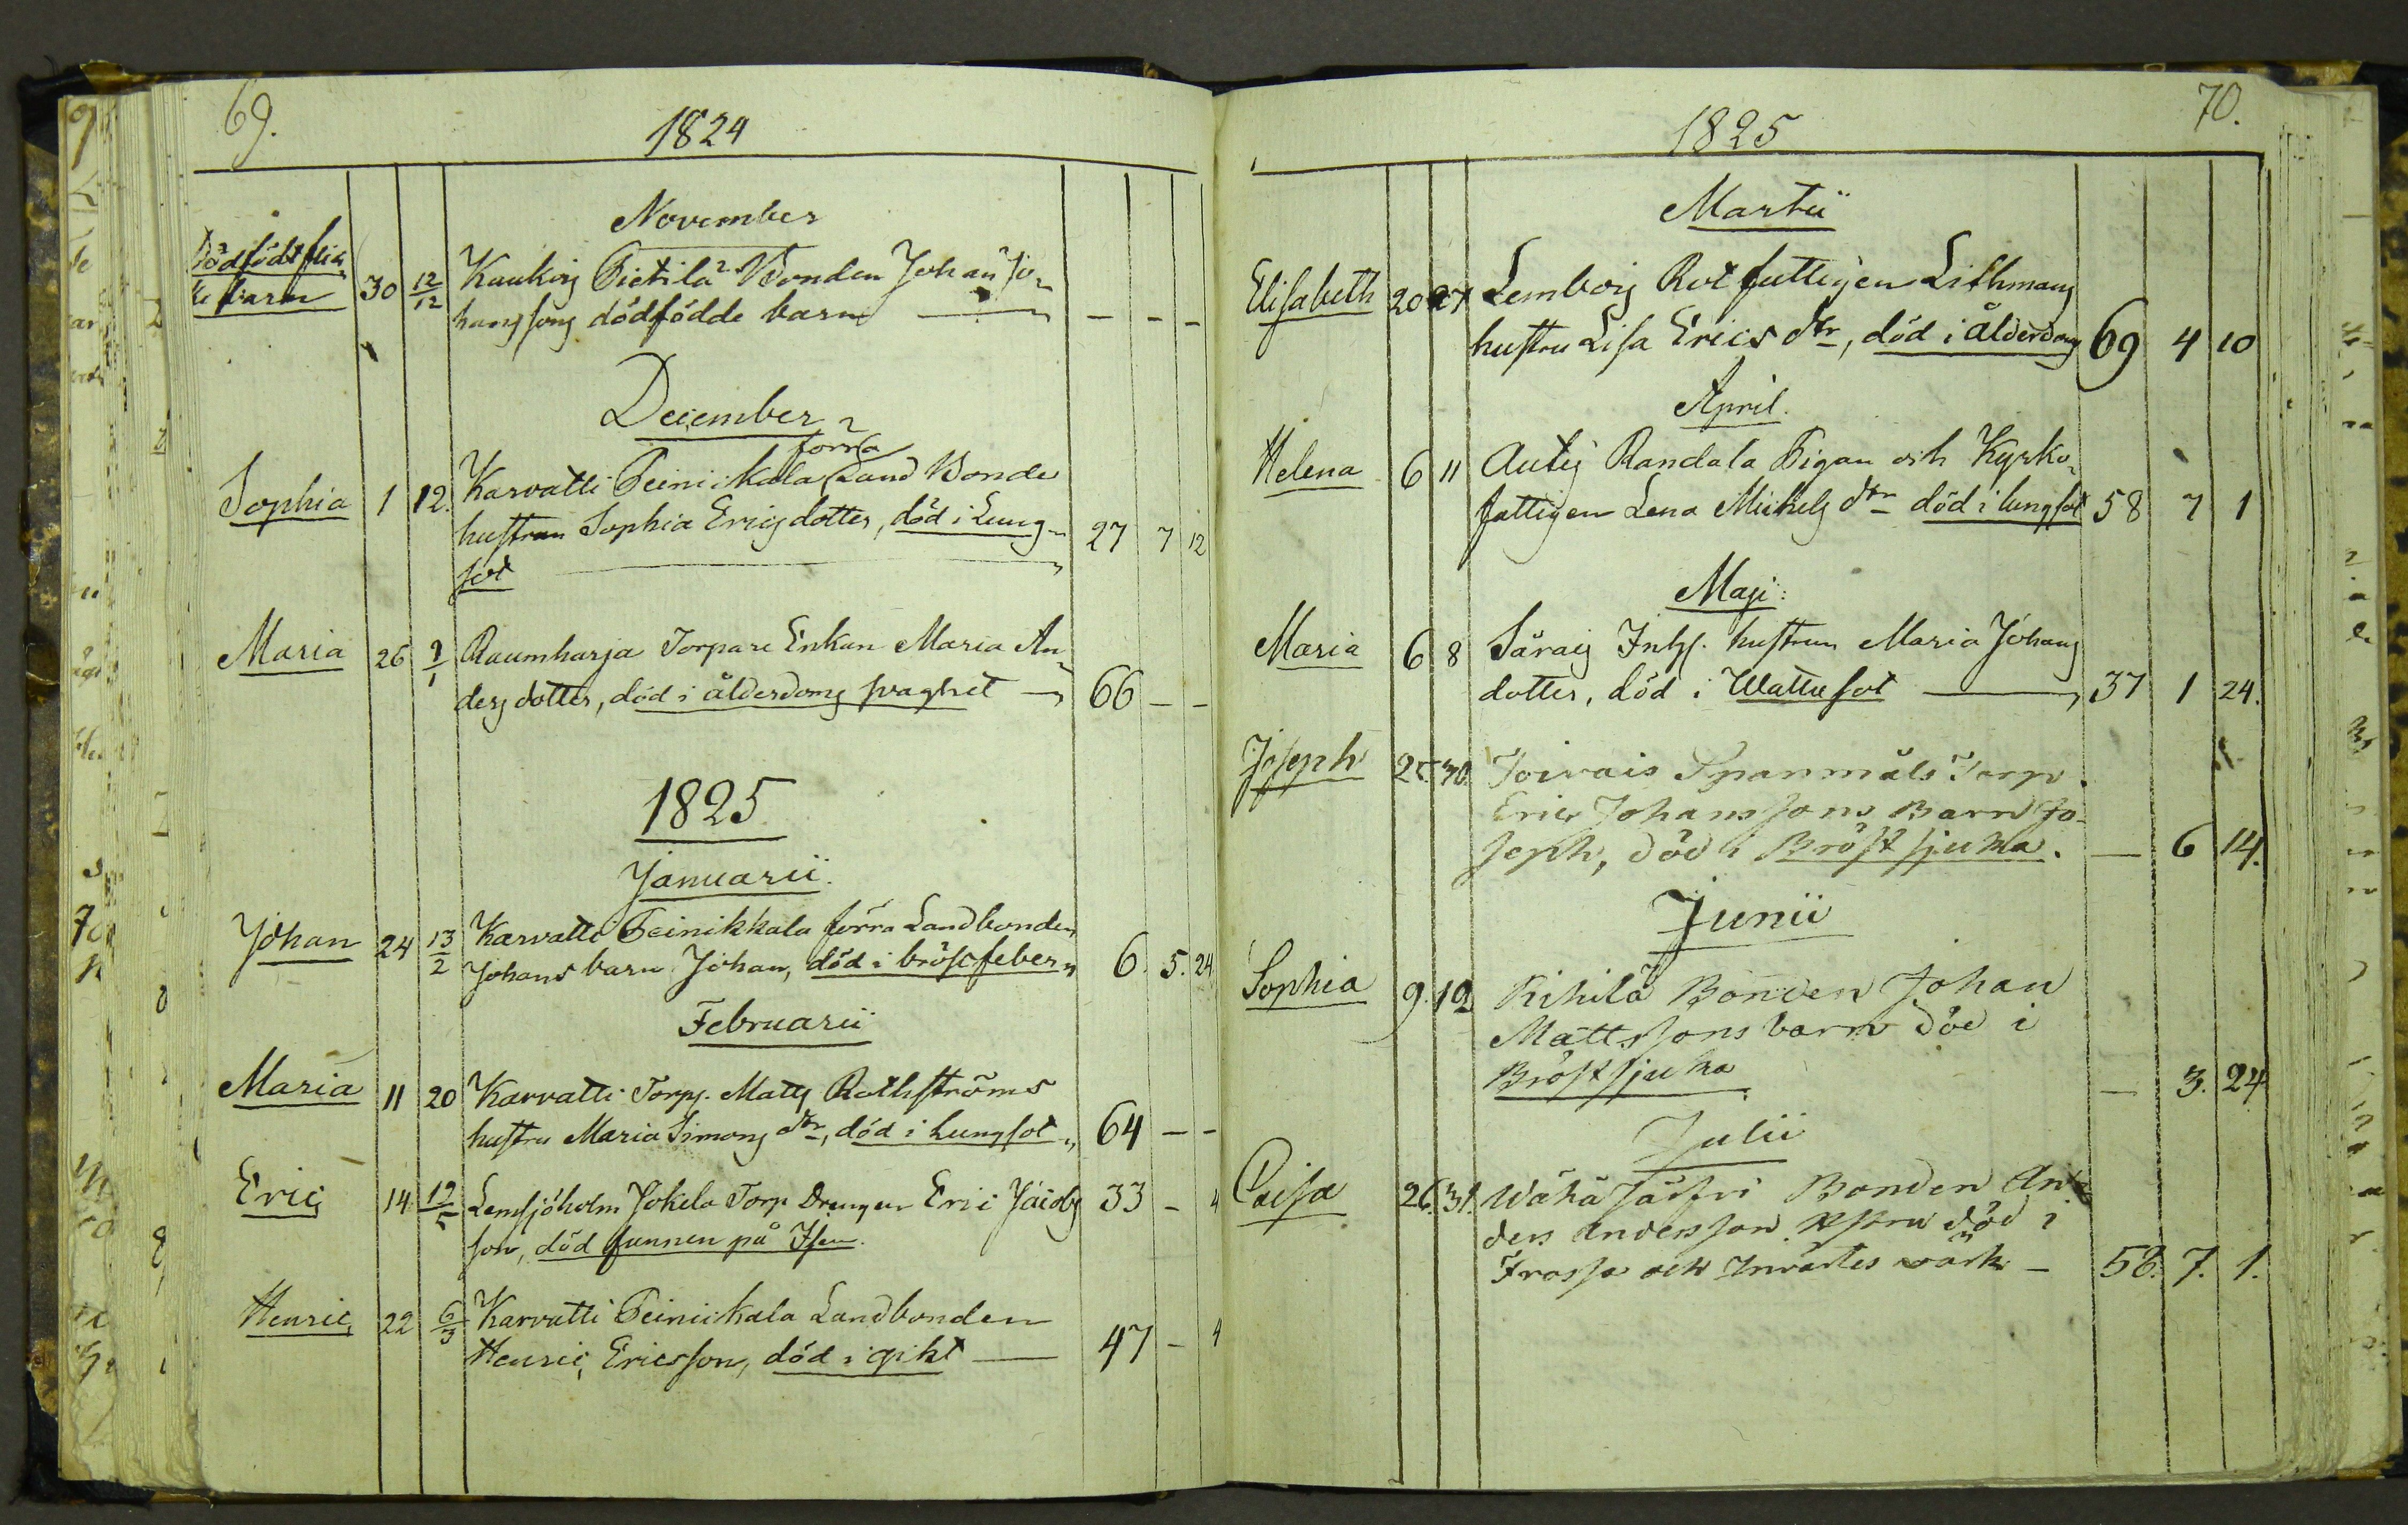 69.
1824
November
Dödfödt flic-
ke barn 30 12/12 Kaukois Pietilä Bonden Johan Jo-
hansons dödfödde barn — — — —
December
förra
Sophia 1 12. Karvatti Peinickala Land Bonde
hustrun Sophia Erics dotter, död i Lung- 27 7 12
sot
Maria 26 9/1 Raumharja Torpare Enkan Maria An-
ders dotter, död i ålderdoms svaghet — 66 — —
1825
Januarii.
Johan 24 13/2 Karvatti Peinikkala förra Landbonden
Johans barn Johan, död i bröstfeber 6. 5. 24
Februarii
Maria 11 20 Karvatti Torp. Matts Rothströms
hustru Maria Simons dtr, död i Lungsot 64 — —
Eric 14 12/5 Lemsjöholm Jokela Torp Drengen Eric Jacobs 33 — 4
son, död funnen på Isen.
Henric 22 6/3 Karvatti Peinickala Landbonden
Henric Ericsson, död i gikt — 47 — 4
70.
1825
Martii
Elisabeth 20 27 Lembois Rotfattigen Lithmans
hustru Lisa Erics dtr, död i ålderdom 69 4 10
April.
Helena 6 11 Autis Randala Pigan och Kyrko-
fattigen Lena Mickels dtr död i lungsot 58 7 1
Maji:
Maria 6 8 Särais Inhs. hustrun Maria Johans
dotter, död i Wattusot — 37 1 24.
Joseph 25. 30. Toivais Spanmåls Torp.
Eric Johanssons Barn Jo-
seph, död i Bröstsjuka. — 6 14.
Junii
Sophia 9. 19 Rihilä Bonden Johan
Mattssons barn död i
Bröstsjuka — 3. 24
Julii
Caisa 26. 31. Wähä Järfvi Bonden An-
ders Andersson Hstru död i
Frossa och Invärtes wärk — 58. 7. 1.